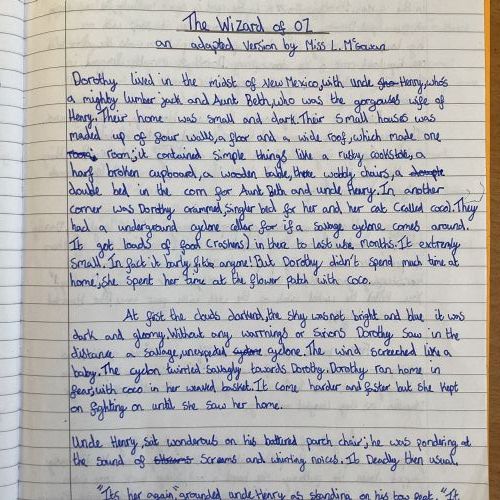 The Wizard of OZ
an adapted version by Miss L. McGowan
Dorothy lived in the midst of New Mexico, with uncle Henry, who's
a mighty lumber jack and Aunt Beth, who was the gorgouses wife of
Henry. Their home was small and dark. Their small houses was
maded up of four walls, a floor and a wide roof, which made one
room; it contained simple things like a rusty cookstole, a
harf broken cupboard, a wooden table, three wobbly chairs, a
double bed in the corn for Aunt Beth and uncle Henry. In another
corner was Dorothy crammed, singler bed for her and her cat (called coco). They
had a underground cyclone celler for if a savage cyclone comes around.
It got loads of food (rashens) in there to last use months. It extremly
small. In fact it harly fits anyone! But Dorothy didn't spend much time at
home; she spent her time at the flower patch with coco.
At first the clouds darkend, the sky was not bright and blue it was
dark and gloomy. Without any warrnings or sirons Dorothy saw in the
distance a savage, unexpeded cyclone. The wind screeched like a
baby. The cyclon twirrled savagly towards Dorothy. Dorothy ran home in
fear, with coco in her weaved basket. It come harder and faster but she kept
on fighting on until she saw her home.
Unde Henry, sat wonderous on his battured parch chair; he was pondering at
the sound of screams and whirling noices. It Deadly then usual.
"Its her again," grounded unde Henry as standing on his two feet. "It